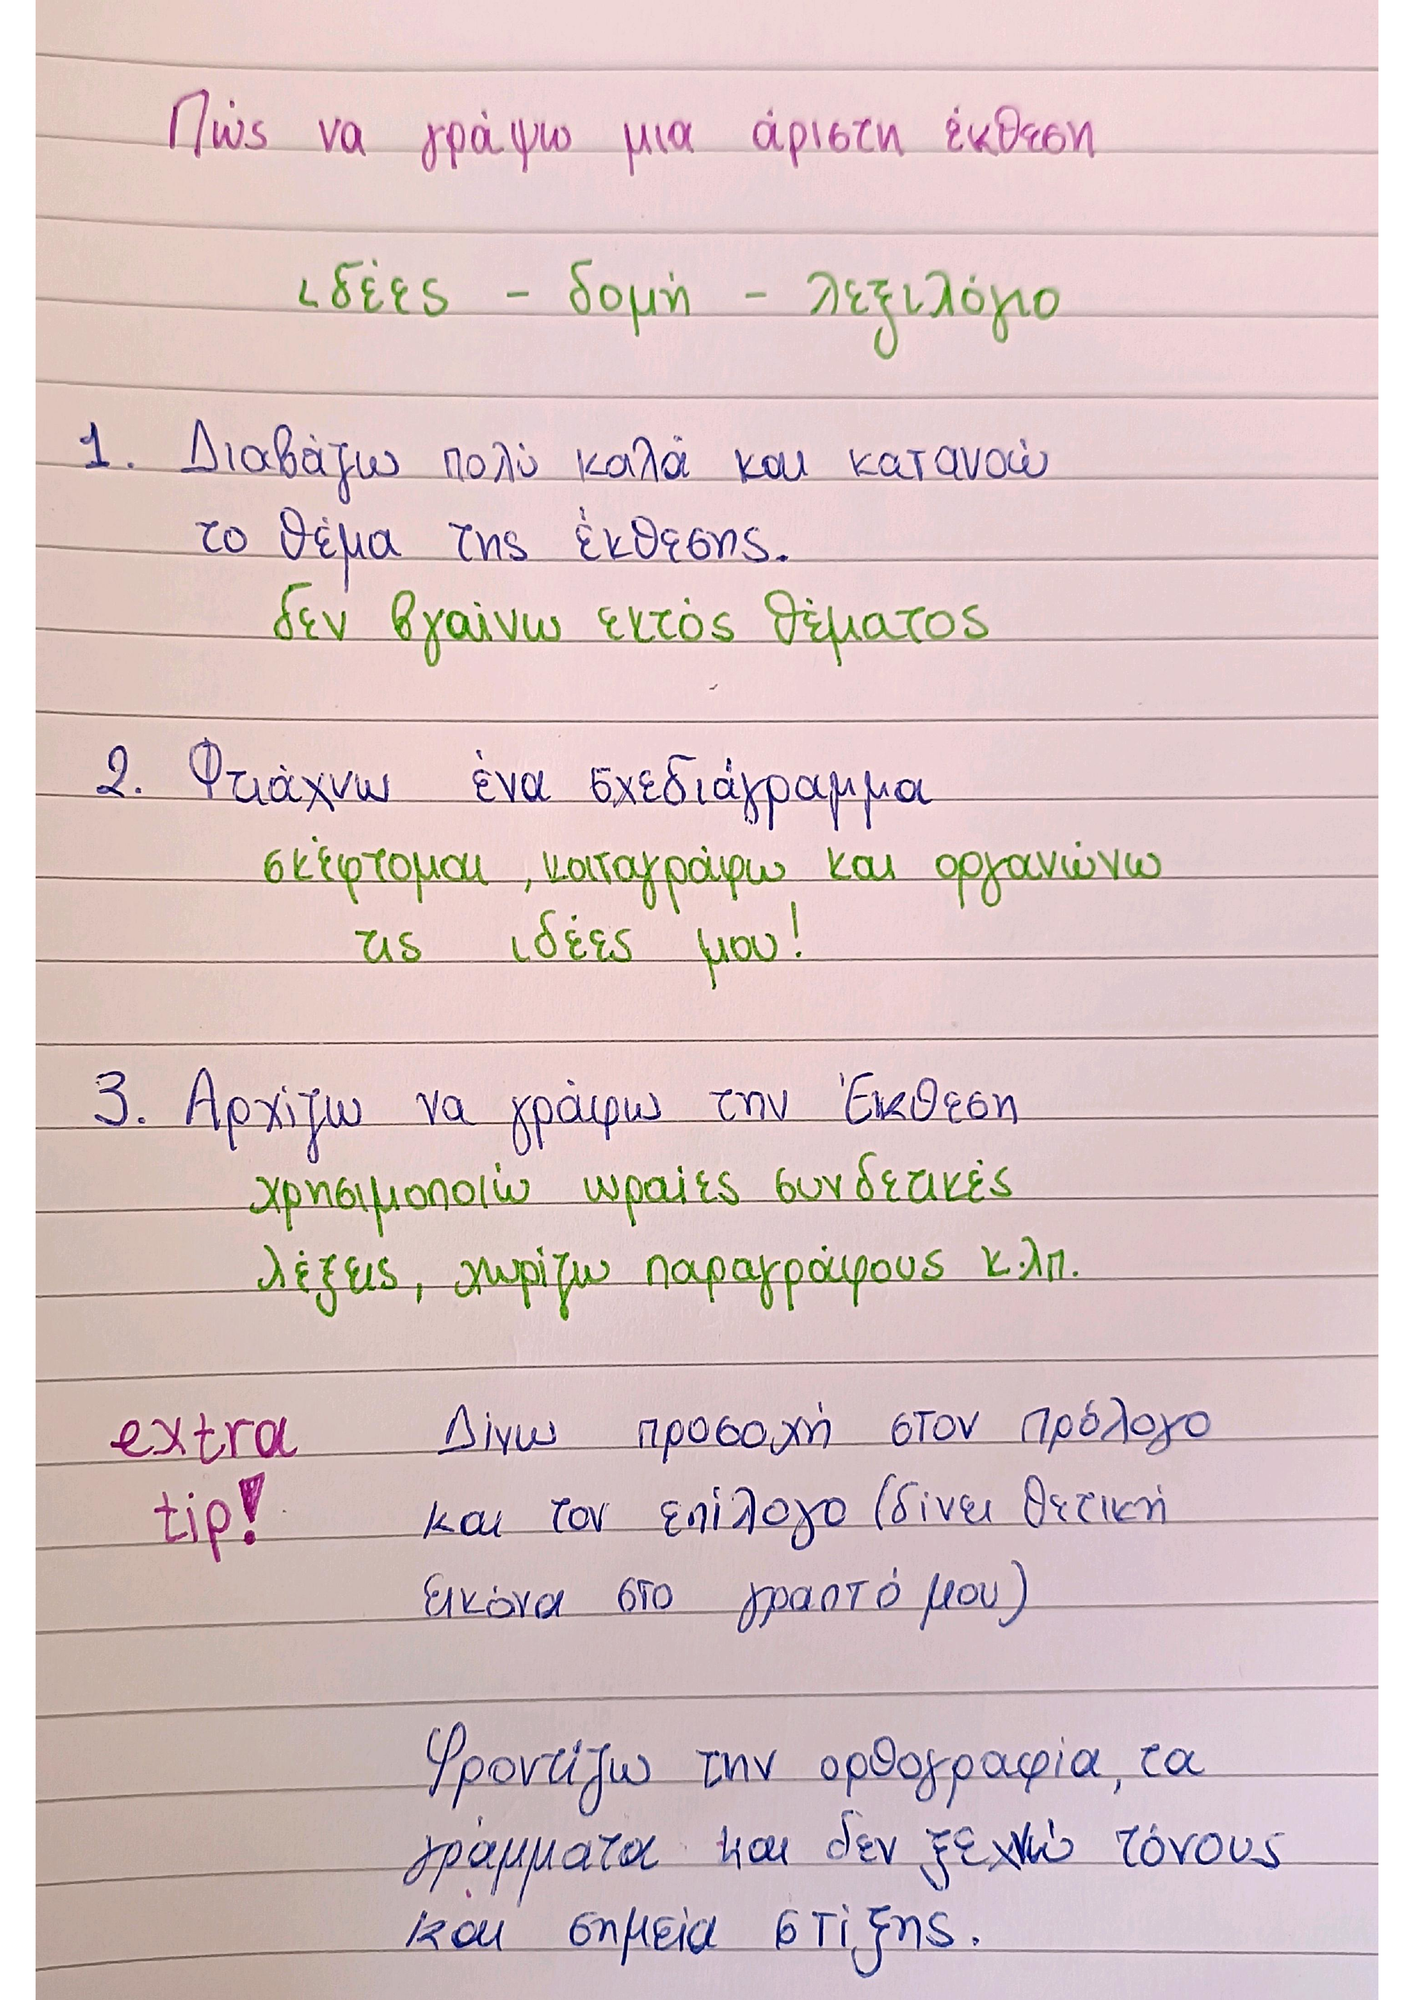 Πώς να γράψω μια άριστη έκθεση
ιδέες - δομή - λεξιλόγιο
1. Διαβάζω πολύ καλά και κατανοώ
το θέμα της έκθεσης.
δεν βγαίνω εκτός θέματος
2. Φτιάχνω ένα σχεδιάγραμμα
σκέφτομαι, καταγράφω και οργανώνω
τις ιδέες μου!
3. Αρχίζω να γράφω την Έκθεση
χρησιμοποιώ ωραίες συνδετικές
λέξεις, χωρίζω παραγράφους κ.λπ.
extra
tip!
Δίνω προσοχή στον πρόλογο
και τον επίλογο (δίνει θετική
εικόνα στο γραπτό μου)
Φροντίζω την ορθογραφία, τα
γράμματα και δεν ξεχνώ τόνους
και σημεία στίξης.